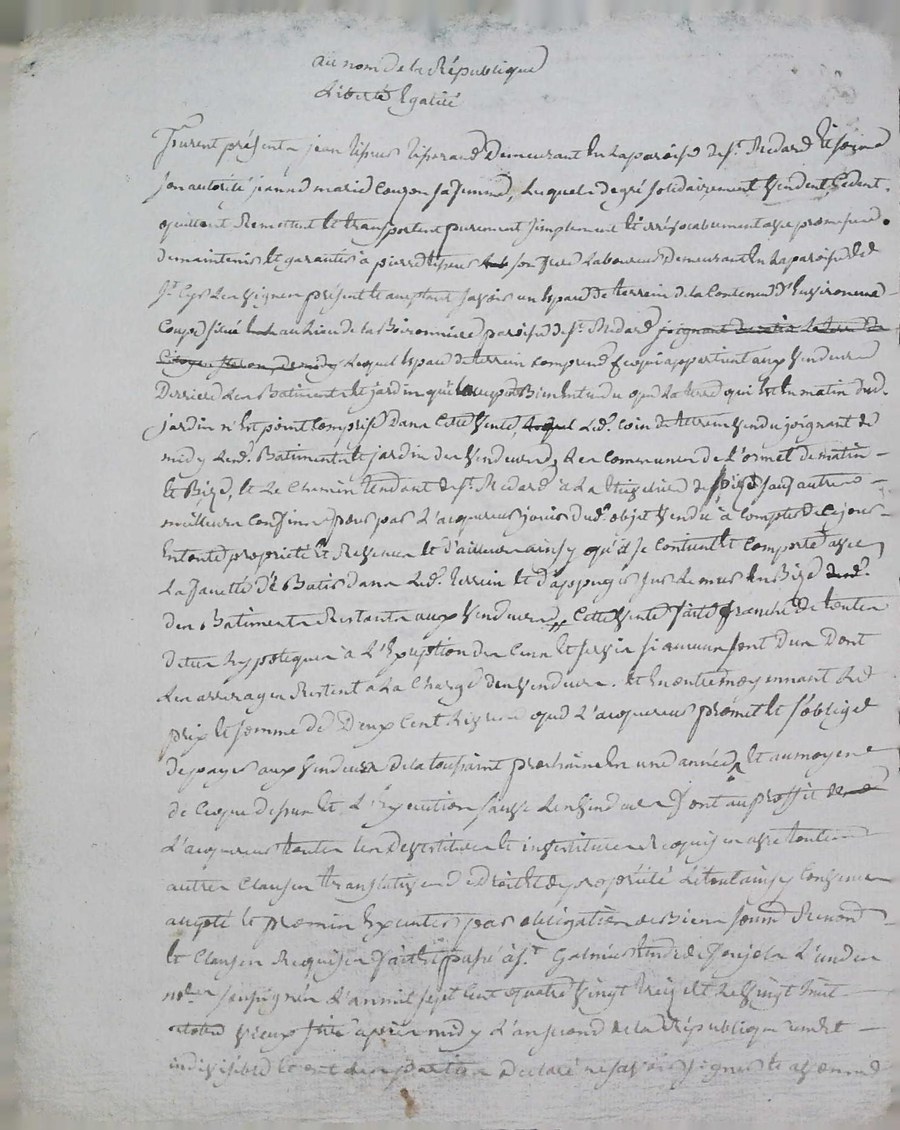 au nom de la République
Liberté Egalité
Furent présents jean demeurant en la paroisse de st. Medard
son autorité jeanne marie Couzon sa femme, lesquels de gré solidairement vendent Cedent
quittent Remettent et transportent purement simplement et irrévocablement avec promesse
de maintenir et garantir à pierre son frere Laboureur demeurant en la paroisse de
st. Cyr les vignes présent et acceptant savoir un espace de terrein de la Contenue d'Environ une
Coupe situé au Lieu de la paroisse de st. Medard joignant
Citoyen de midy Lequel espace de terrein comprend ce qui appartient aux vendeurs
Derriere les Batiments et jardin qu'il occupe Bien entendu que la terre qui est en matin dud.
jardin n'est point comprise dans cette vente, led. coin de terrein vendu joignant de
midy lesd. Batiments et jardin des vendeurs, les communes de L'ormet de matin
et Bize, et le chemin tendant de st. Medard à la de soir sauf autres
meilleurs confins pour par L'acquereur jouir dud. objet vendu à compter de ce jour
en toute propriété et Revenus et d'ailleurs ainsy qu'il se contient et comporte avec
La faculté de Batir dans led. terrein et d'appuyer sur le mur en Bize
des Batiments Restants aux vendeurs, cette vente faite franche de toutes
dettes hypoteques à L'Exception des Cens et servis si aucuns sont dus Dont
les arrerages Restent à la charge des vendeurs. et en outre moyennant le
prix et somme de Deux Cent Livres que L'acquereur promet et s'oblige
de payer aux vendeurs de la toussaint prochaine en une année, et au moyen
de ce que dessus et L'Exécution sauve les vendeurs font au proffit de
L'acquereur toutes les devestitures et investitures Requises avec toutes
autres clauses translatives de droits et propriété Le tout ainsy convenu
accepté et promis Executer par obligation de Biens soumis Renonc
et clauses Requises fait et passé à st. Galmier étude de L'un des
notres soussignés L'an mil sept cent quatre vingt treize et le vingt huit
octobre vieux stile après midy L'an second de la République une et
indivisible et ont les parties déclaré ne savoir signer